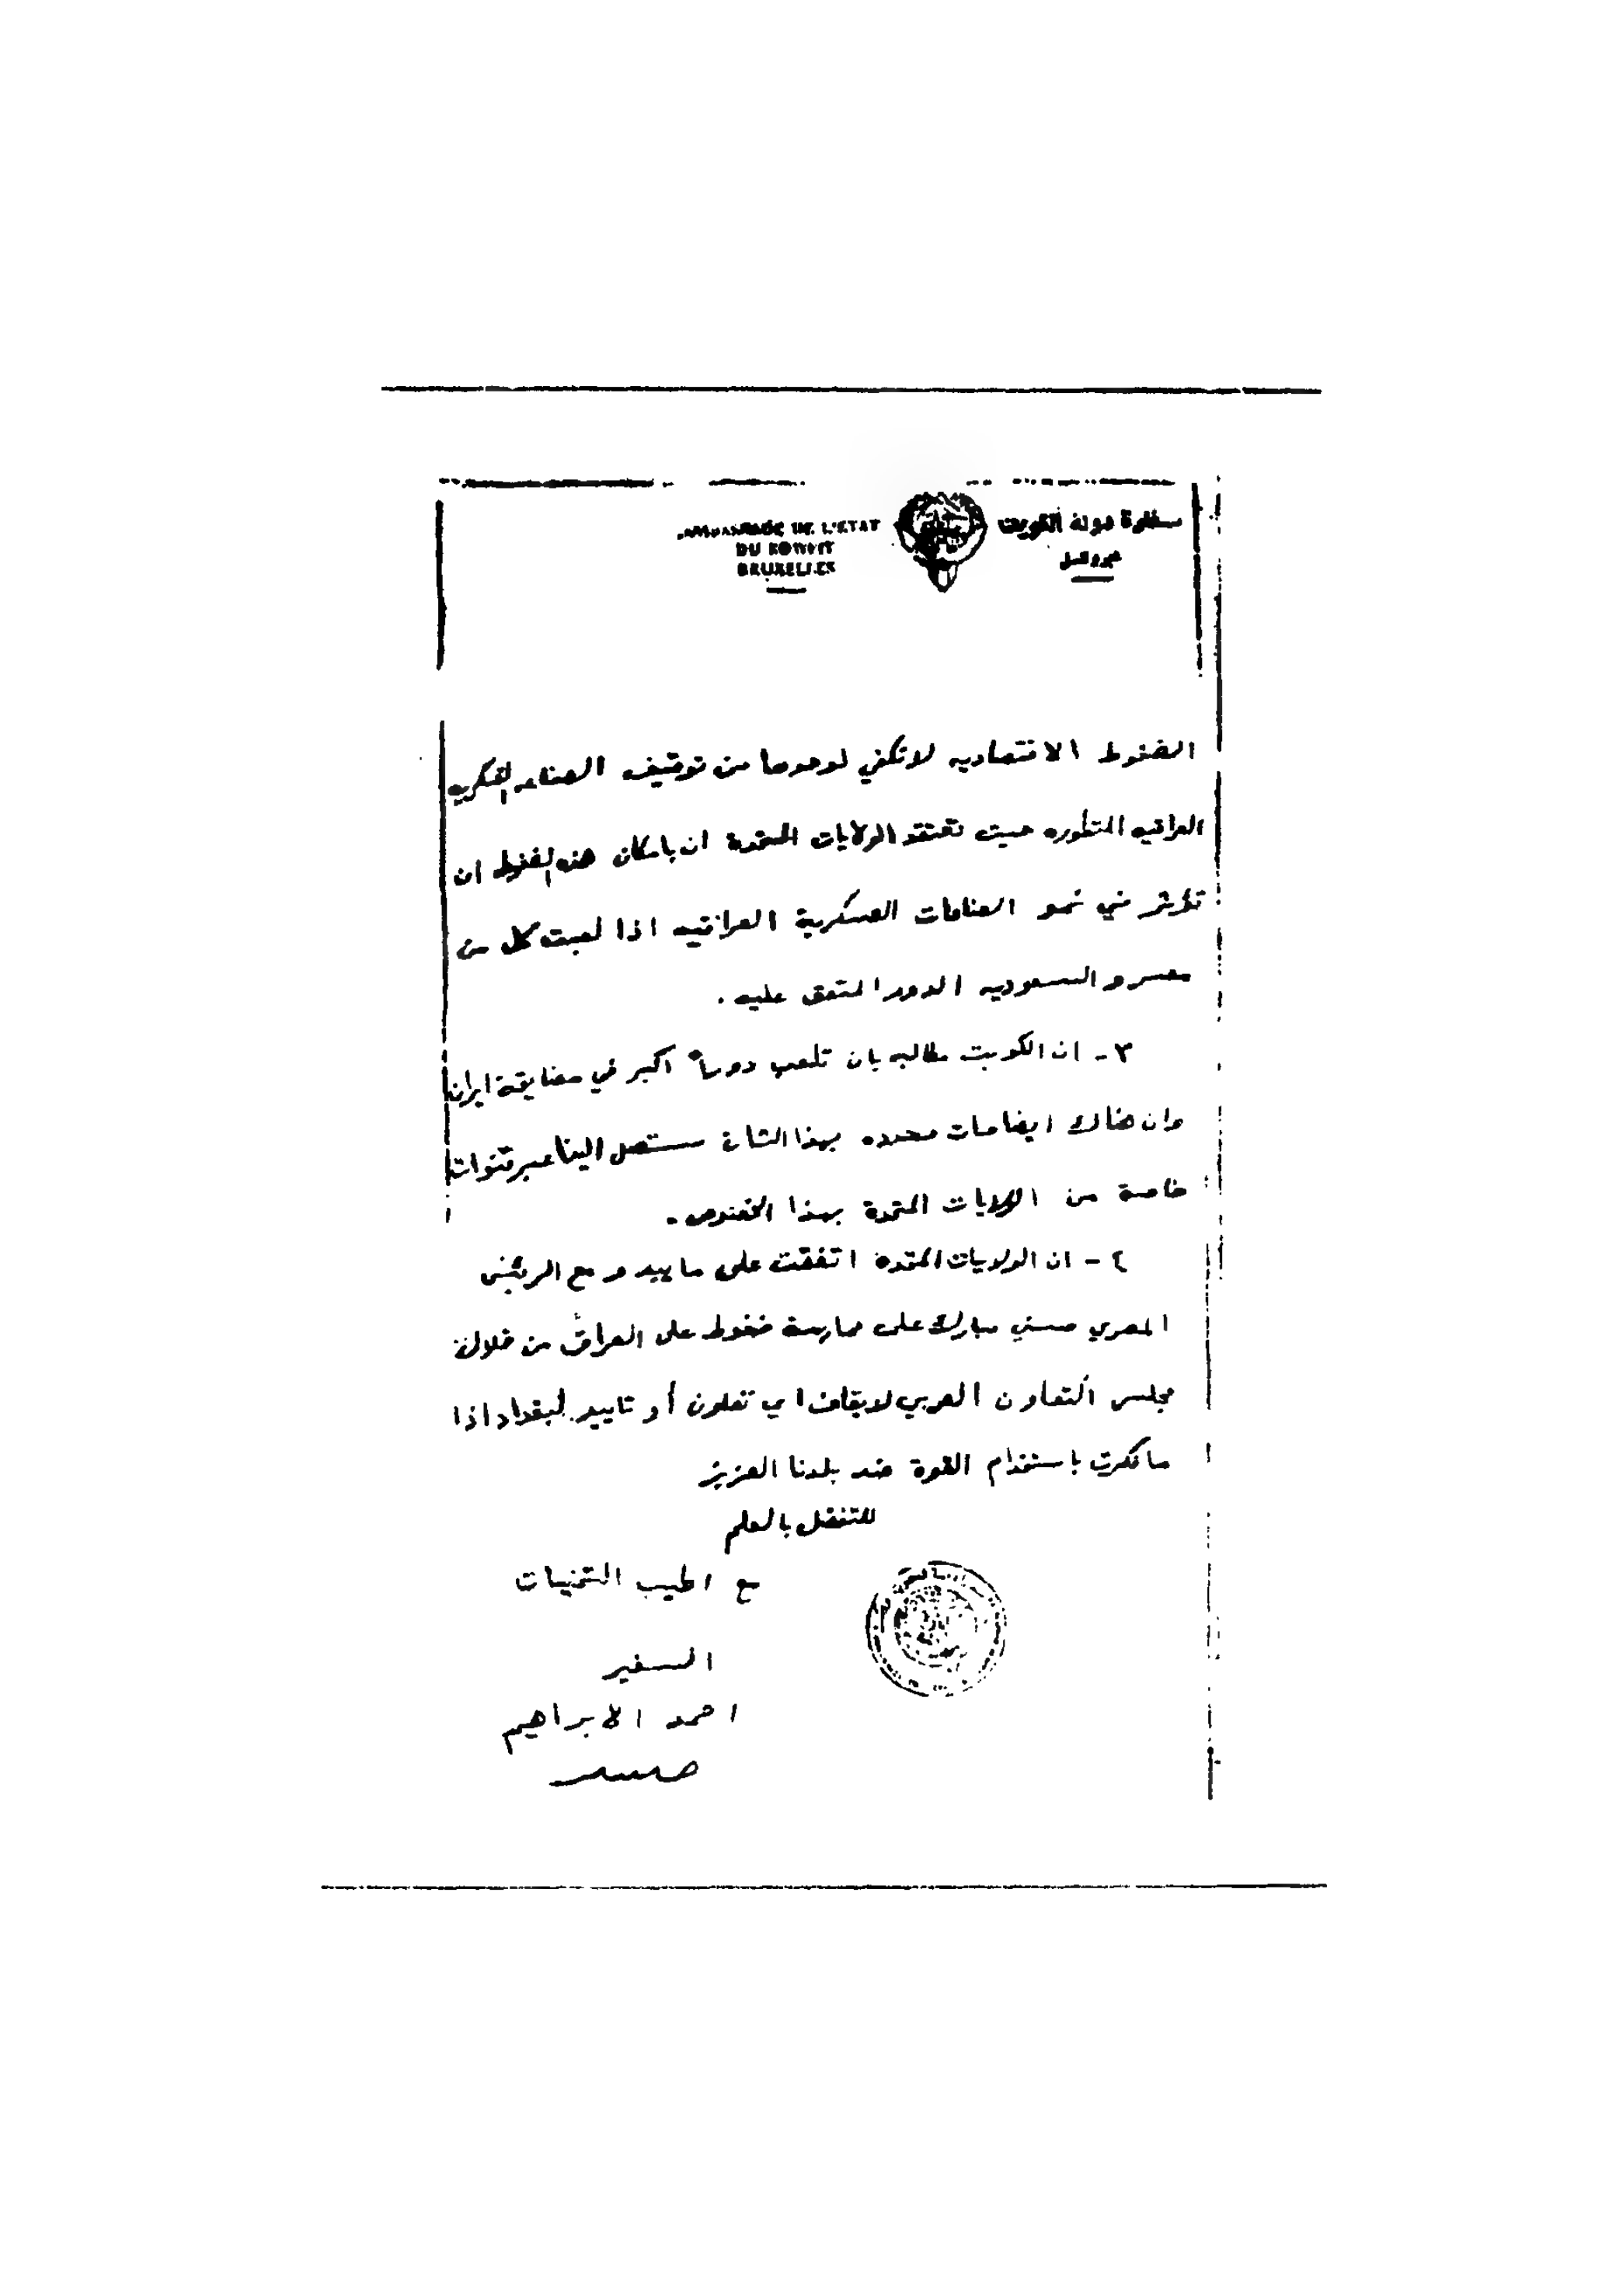 سفارة دولة الكويت
بروكسل
AMBASSADE DE L'ETAT
DU KOWEIT
BRUXELLES
الضغوط الاقتصاديه لا تكفي لوحدها من توقيف الصناعه العسكريه
العراقيه المتطوره حيث تعتقد الولايات المتحدة ان بامكان هذه الضغوط ان
تؤثر في نمو الصناعات العسكرية العراقيه اذا لعبت كل من
مصر و السعوديه الدور المتفق عليه .
٣ - ان الكويت مطالبه بان تلعب دوراً اكبر في مضايقة ايران
وان هناك ايضاحات محدده بهذا الشان ستصل الينا عبر قنوات
خاصة من الولايات المتحدة بهذا الخصوص .
٤ - ان الولايات المتحدة اتفقت على ما يبدو مع الرئيس
المصري حسني مبارك على ممارسة ضغوط على العراق من خلال
مجلس التعاون العربي لايقاف اي تعاون أو تاييد لبغداد اذا
ما فكرت باستخدام القوة ضد بلدنا العزيز
للتفضل بالعلم
مع اطيب التمنيات
السفير
احمد الابراهيم